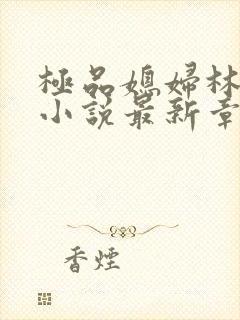 極品媳婦林
小說最新章
香煙